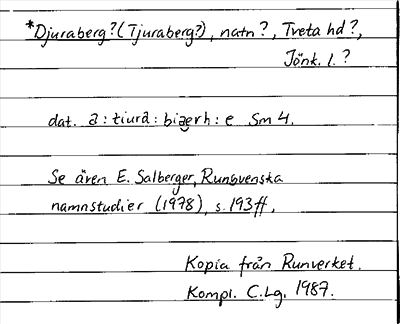 *Djuraberg? (Tjuraberg?), natn?, Tveta hd?,
Jönk. l.?
dat. a : tiura : biąerh : e Sm 4.
Se även E. Salberger, Runsvenska
namnstudier (1978), s. 193ff,
Kopia från Runverket.
Kompl. C.Lg. 1987.